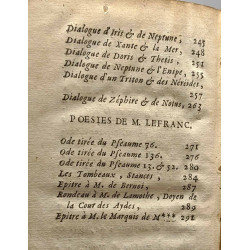 Dialogue d'Iris & de Neptune, 243
Dialogue de Xante & la Mer, 248
Dialogue de Doris & Thetis, 251
Dialogue de Neptune & l'Enipe, 253
Dialogue d'un Triton & des Néreides,
257
Dialogue de Zéphire & de Notus, 263
POESIES DE M. LEFRANC.
Ode tirée du Pseaume 76. 271
Ode tirée du Pseaume 136. 276
Ode tirée du Pseaume 13. & 52. 280
Les Tombeaux, Stances, 284
Epitre à M. de Bernei, 287
Rondeau à M. de Lamoire, Doyen de
la Cour des Aydes, 289
Epitre à M. le Marquis de M***